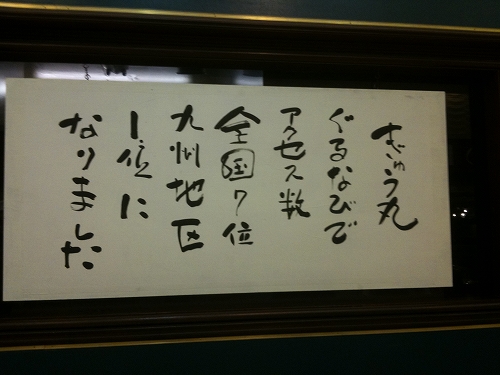 ぎゅう丸
ぐるなびで
アクセス数
全国7位
九州地区
1位に
なりました